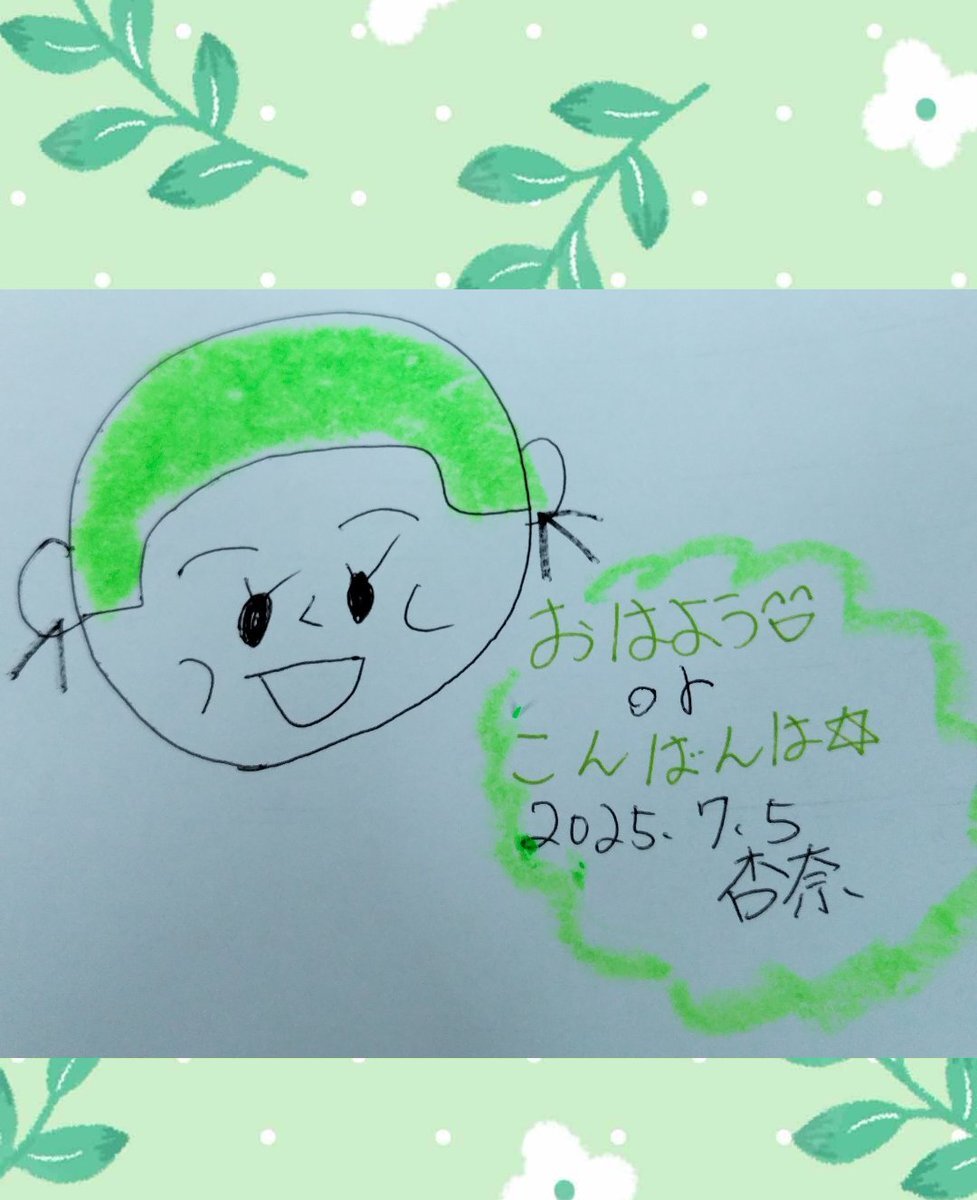 おはよう
or
こんばんは☆
2025.7.5
杏奈